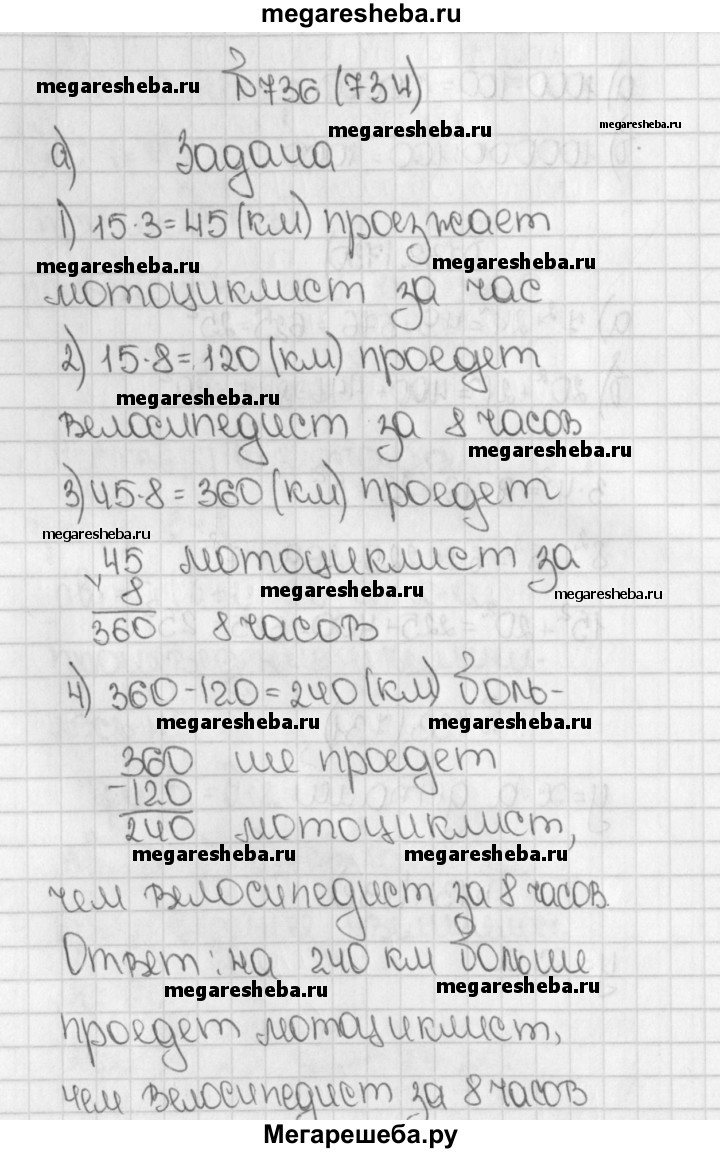 megaresheba.ru
№736 (734)
megaresheba.ru
megaresheba.ru
megaresheba.ru
а) Задача
1) 15·3=45 (км) проезжает
megaresheba.ru
megaresheba.ru
мотоциклист за час
2) 15·8=120 (км) проедет
megaresheba.ru
велосипедист за 8 часов
megaresheba.ru
3) 45·8=360 (км) проедет
megaresheba.ru
45 мотоциклист за
8
megaresheba.ru
megaresheba.ru
360 8 часов
4) 360-120=240 (км) боль-
megaresheba.ru
megaresheba.ru
360 ше проедет
-120
240 мотоциклист,
megaresheba.ru
megaresheba.ru
чем велосипедист за 8 часов.
Ответ: на 240 км больше
megaresheba.ru
megaresheba.ru
проедет мотоциклист,
чем велосипедист за 8 часов
Мегарешеба.ру